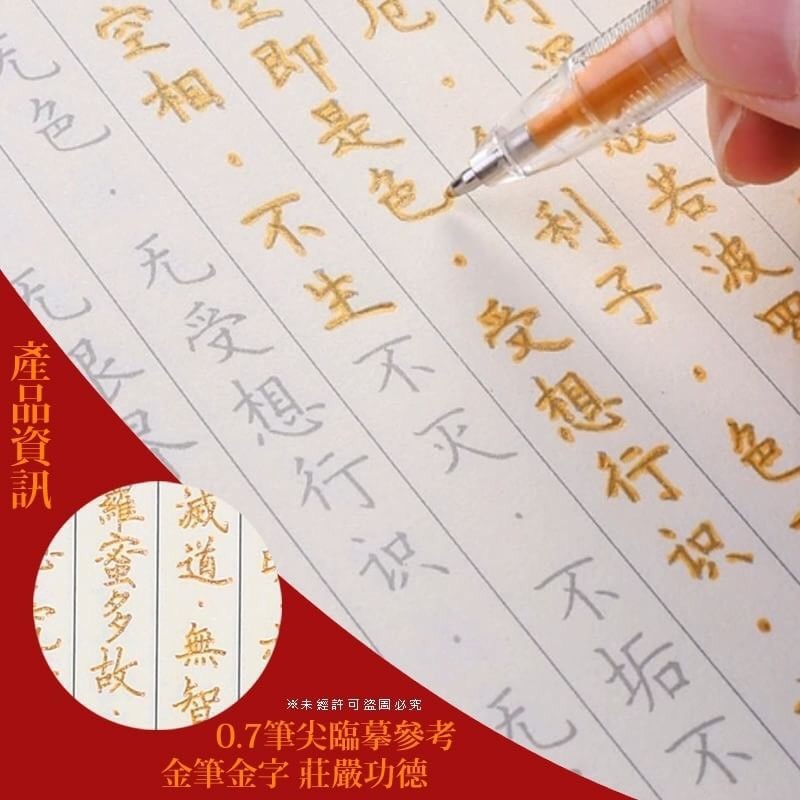 行
若波
厄·
利子·色
空即是色·受想行识·
空相
不生不灭·不垢不
无色·无受想行识·无
无眼
產品資訊
滅道·無智
羅蜜多故·
究
※未經許可盜圖必究
0.7筆尖臨摹參考
金筆金字 莊嚴功德